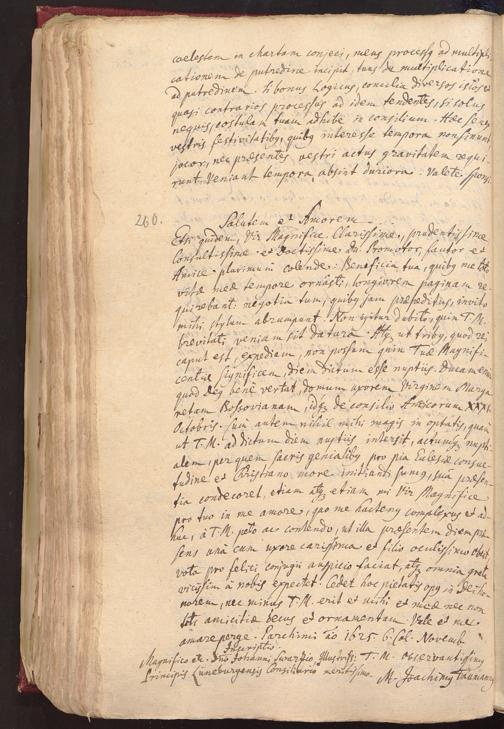 coelestem in chartam conjeci, meus processq ad multipli
cationem de putredine incipit, tuus de multiplicatione
ad putredinem. Si bonus Logicus, concilia diversos istos et
quasi contrarios processus ad idem tendentes, si solus
nequis, costulam tuam adhibe in consilium. Haec
vestris festivitatibq, quibq interesse tempora non sinunt
jocor, nec praesentes, vestri actus gravitatem requi
runt. Veniant tempora, absint duriora. Valete
260.
Salutem et Amorem
Etsi quidem, Vir Magnifice, Clarissime, prudentissime
Consultissime et Doctissime Dn. Promotor, fautor et
Amice plurimum colende, Beneficia tua, quibq me
vitae meae tempore ornasti, longiorem paginam re
quirebant: negotia tum, quibq jam praepeditus, invito
mihi stylum abrumpunt. Non igitur dubito, quin T. M.
brevitati veniam sit datura. Atq, ut tribq, quod rei
caput est, expediam, non possum quin Tuae Magnifi
centiae significem, diem dictum esse nuptiis. Ducam enim
quod Deq bene vertat, domum uxorem Virginem Marga
retam Bossovianam, idq de consilio Amicorum XXXI.
Octobris. Cum autem nihil mihi magis in optatis, quam
ut T. M. ad dictum diem nuptiis intersit, actumq nupti
alem, per quem sacris genialibq pro pia Ecclesiae consue
tudine et Christiano more initiandi sumq, sua praesen
tia condecoret, etiam atq etiam mi Vir Magnifice
pro tuo in me amore, quo me hactenq complexus et ad
huc, a T. M. peto ac contendo, ut illa praesentem diem prae
sens una cum uxore carissima et filio ocultissimo
vota pro felici conjugii auspicio faciat, atq omnia grata
vicissim a nobis expectet. Cedet hoc pietatis opq in Dei ho
norem, nec minus T. M. erit et mihi et meae nec non
toti amicitiae decus et ornamentum. Vale et me
amare perge. Parchimi ao 1625. 6. Cal. Novemb.
Inscriptio.
Magnifico etc. Dno Johanni Swarzio, Illustriss:
Principis Luneburgensis Consiliario meritissimo.
T. M. Observantissimq
M. Joachimq Taumannq